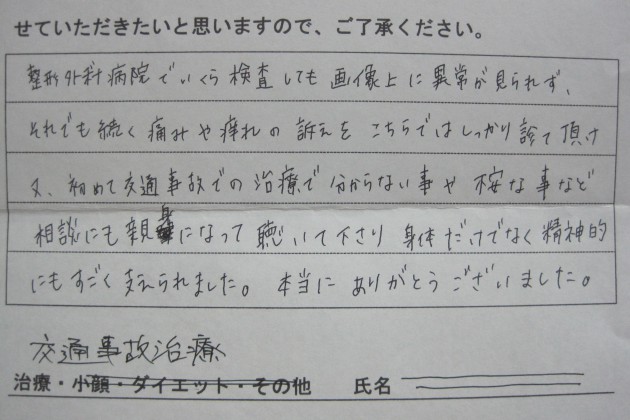 せていただきたいと思いますので、ご了承ください。
整形外科病院でいくら検査しても画像上に異常が見られず、
それでも続く痛みや痺れの訴えをこちらではしっかり診て頂け
又、初めて交通事故での治療で分からない事や不安な事など
相談にも親身になって聴いて下さり身体だけでなく精神的
にもすごく支えられました。本当にありがとうございました。
交通事故治療
治療・小顔・ダイエット・その他 氏名